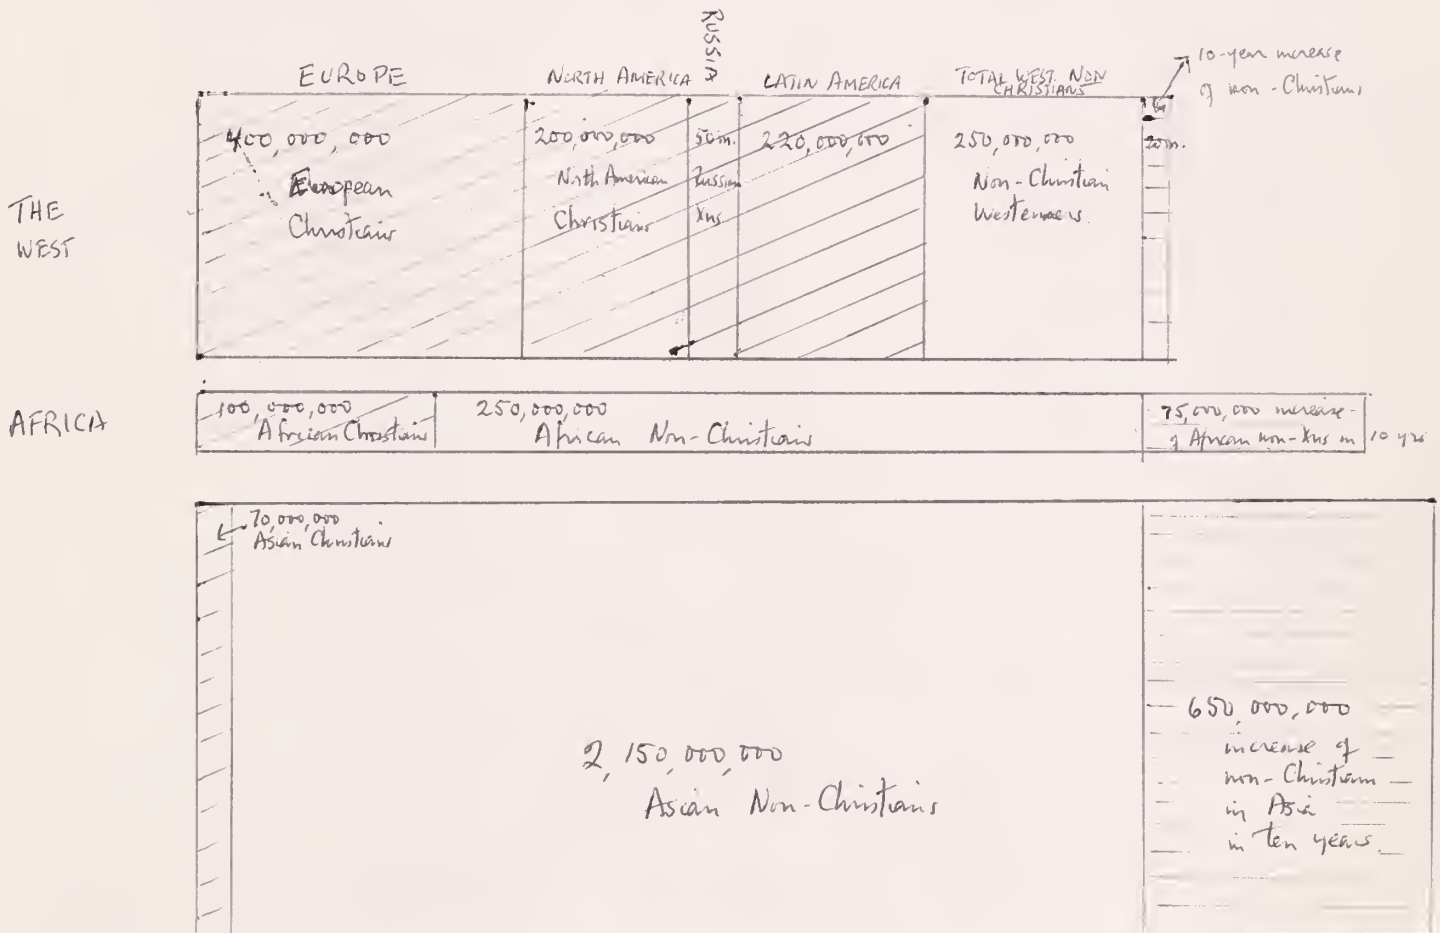 RUSSIA
EUROPE
NORTH AMERICA
LATIN AMERICA
TOTAL WEST. NON
CHRISTIANS
10-year increase
of non-Christians
THE
WEST
400,000,000
European
Christians
200,000,000
North American
Christians
50 m.
Russian
Xns
220,000,000
250,000,000
Non-Christian
Westerners.
20 m.
AFRICA
100,000,000
African Christians
250,000,000
African Non-Christians
75,000,000 increase
of African non-Xns in 10 yrs
70,000,000
Asian Christians
2,150,000,000
Asian Non-Christians
650,000,000
increase of
non-Christians
in Asia
in ten years.